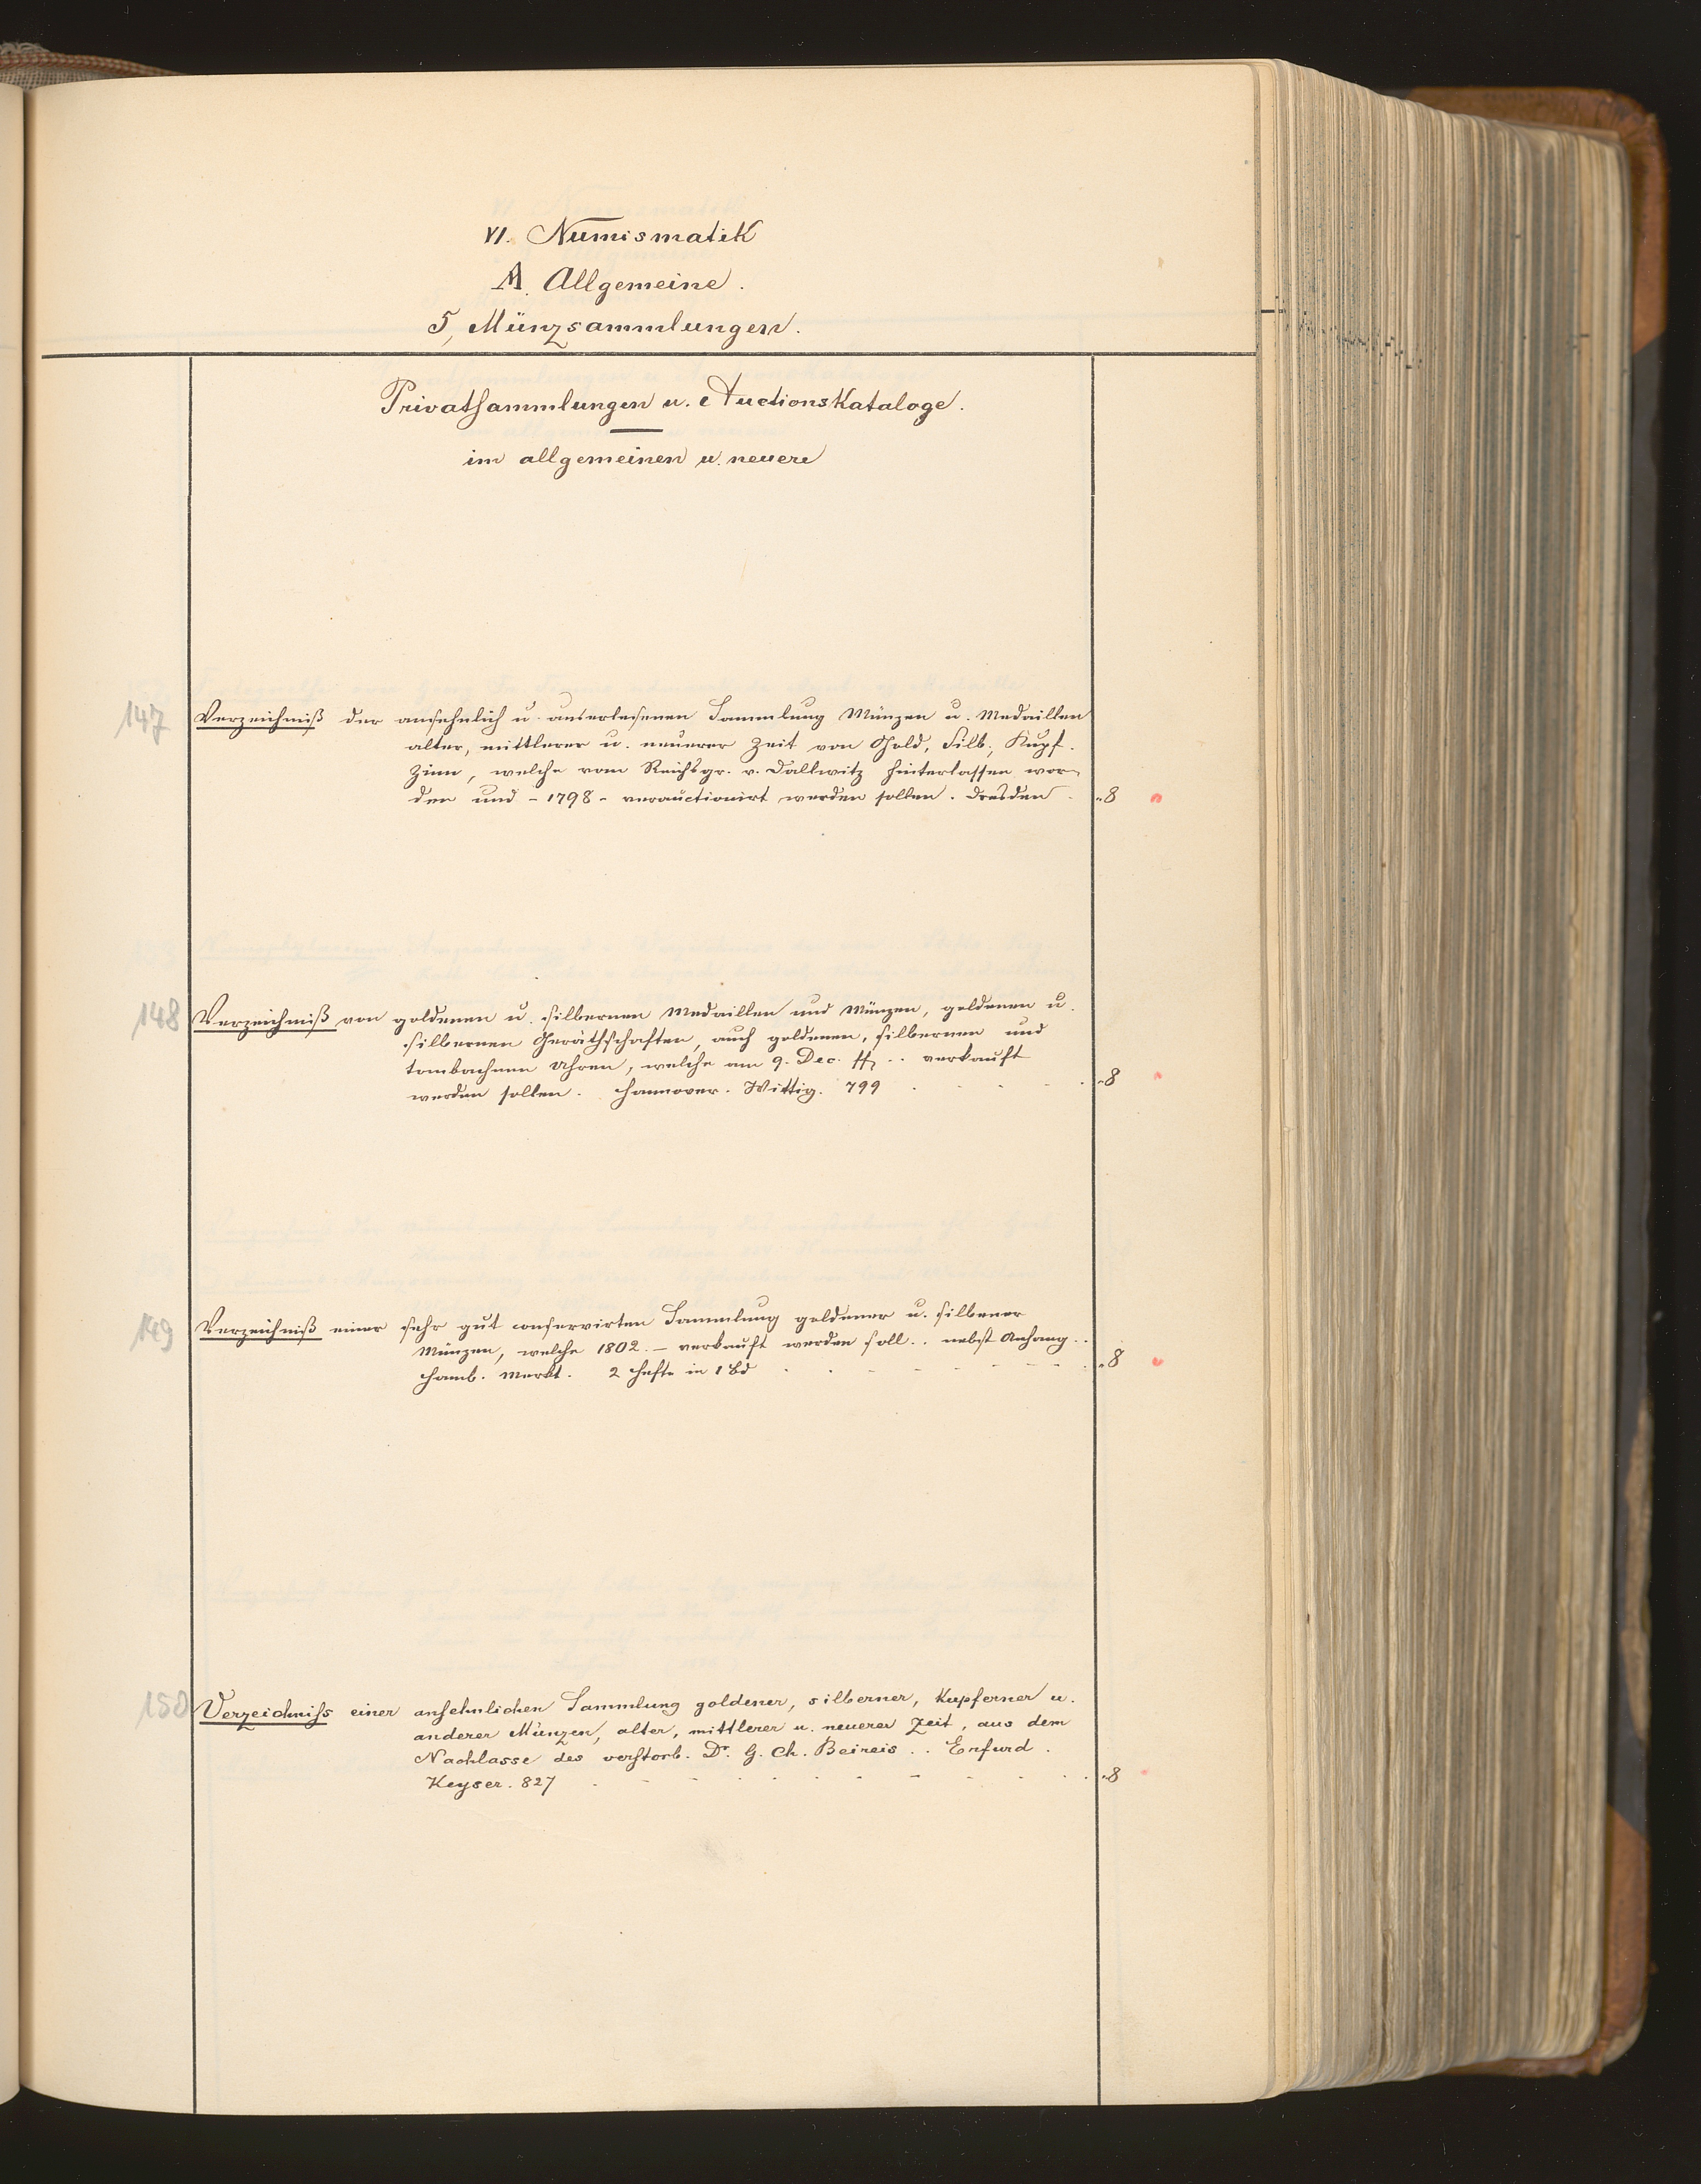 VI. Numismatik
A. Allgemeine.
5, Münzsammlungen.
Privatsammlungen u. Auctionskataloge.
im allgemeinen u. neuere
147 Verzeichniß der ansehnlich u. auserlesenen Sammlung Münzen u. Medaillen
alter, mittlerer u. neuerer Zeit von Gold, Silb., Kupf.
Zinn, welche vom Reichsgr. v. Dallwitz hinterlassen wor-
den und - 1798 - verauctionirt werden sollen. Dresden. „8
148 Verzeichniß von goldenen u. silbernen Medaillen und Münzen, goldenen u.
silbernen Geräthschaften, auch goldenen, silbernen und
tombachnen Uhren, welche am 9. Dec. ff. .. verkauft
werden sollen. Hannover. Wittig. 799 . - - - . „8
149 Verzeichniß einer sehr gut conservirten Sammlung goldener u. silbener
Münzen, welche 1802. – verkauft werden soll .. nebst Anhang ..
Hamb. Merkt. 2 Hefte in 1 Bd . . - - - - - . „8
150 Verzeichniss einer ansehnlichen Sammlung goldener, silberner, Kupferner u.
anderer Münzen, alter, mittlerer u. neuerer Zeit, aus dem
Nachlasse des verstorb. Dr. G. Ch. Beireis .. Erfurd.
Keyser. 827 . - - . . . . - - . . . „8